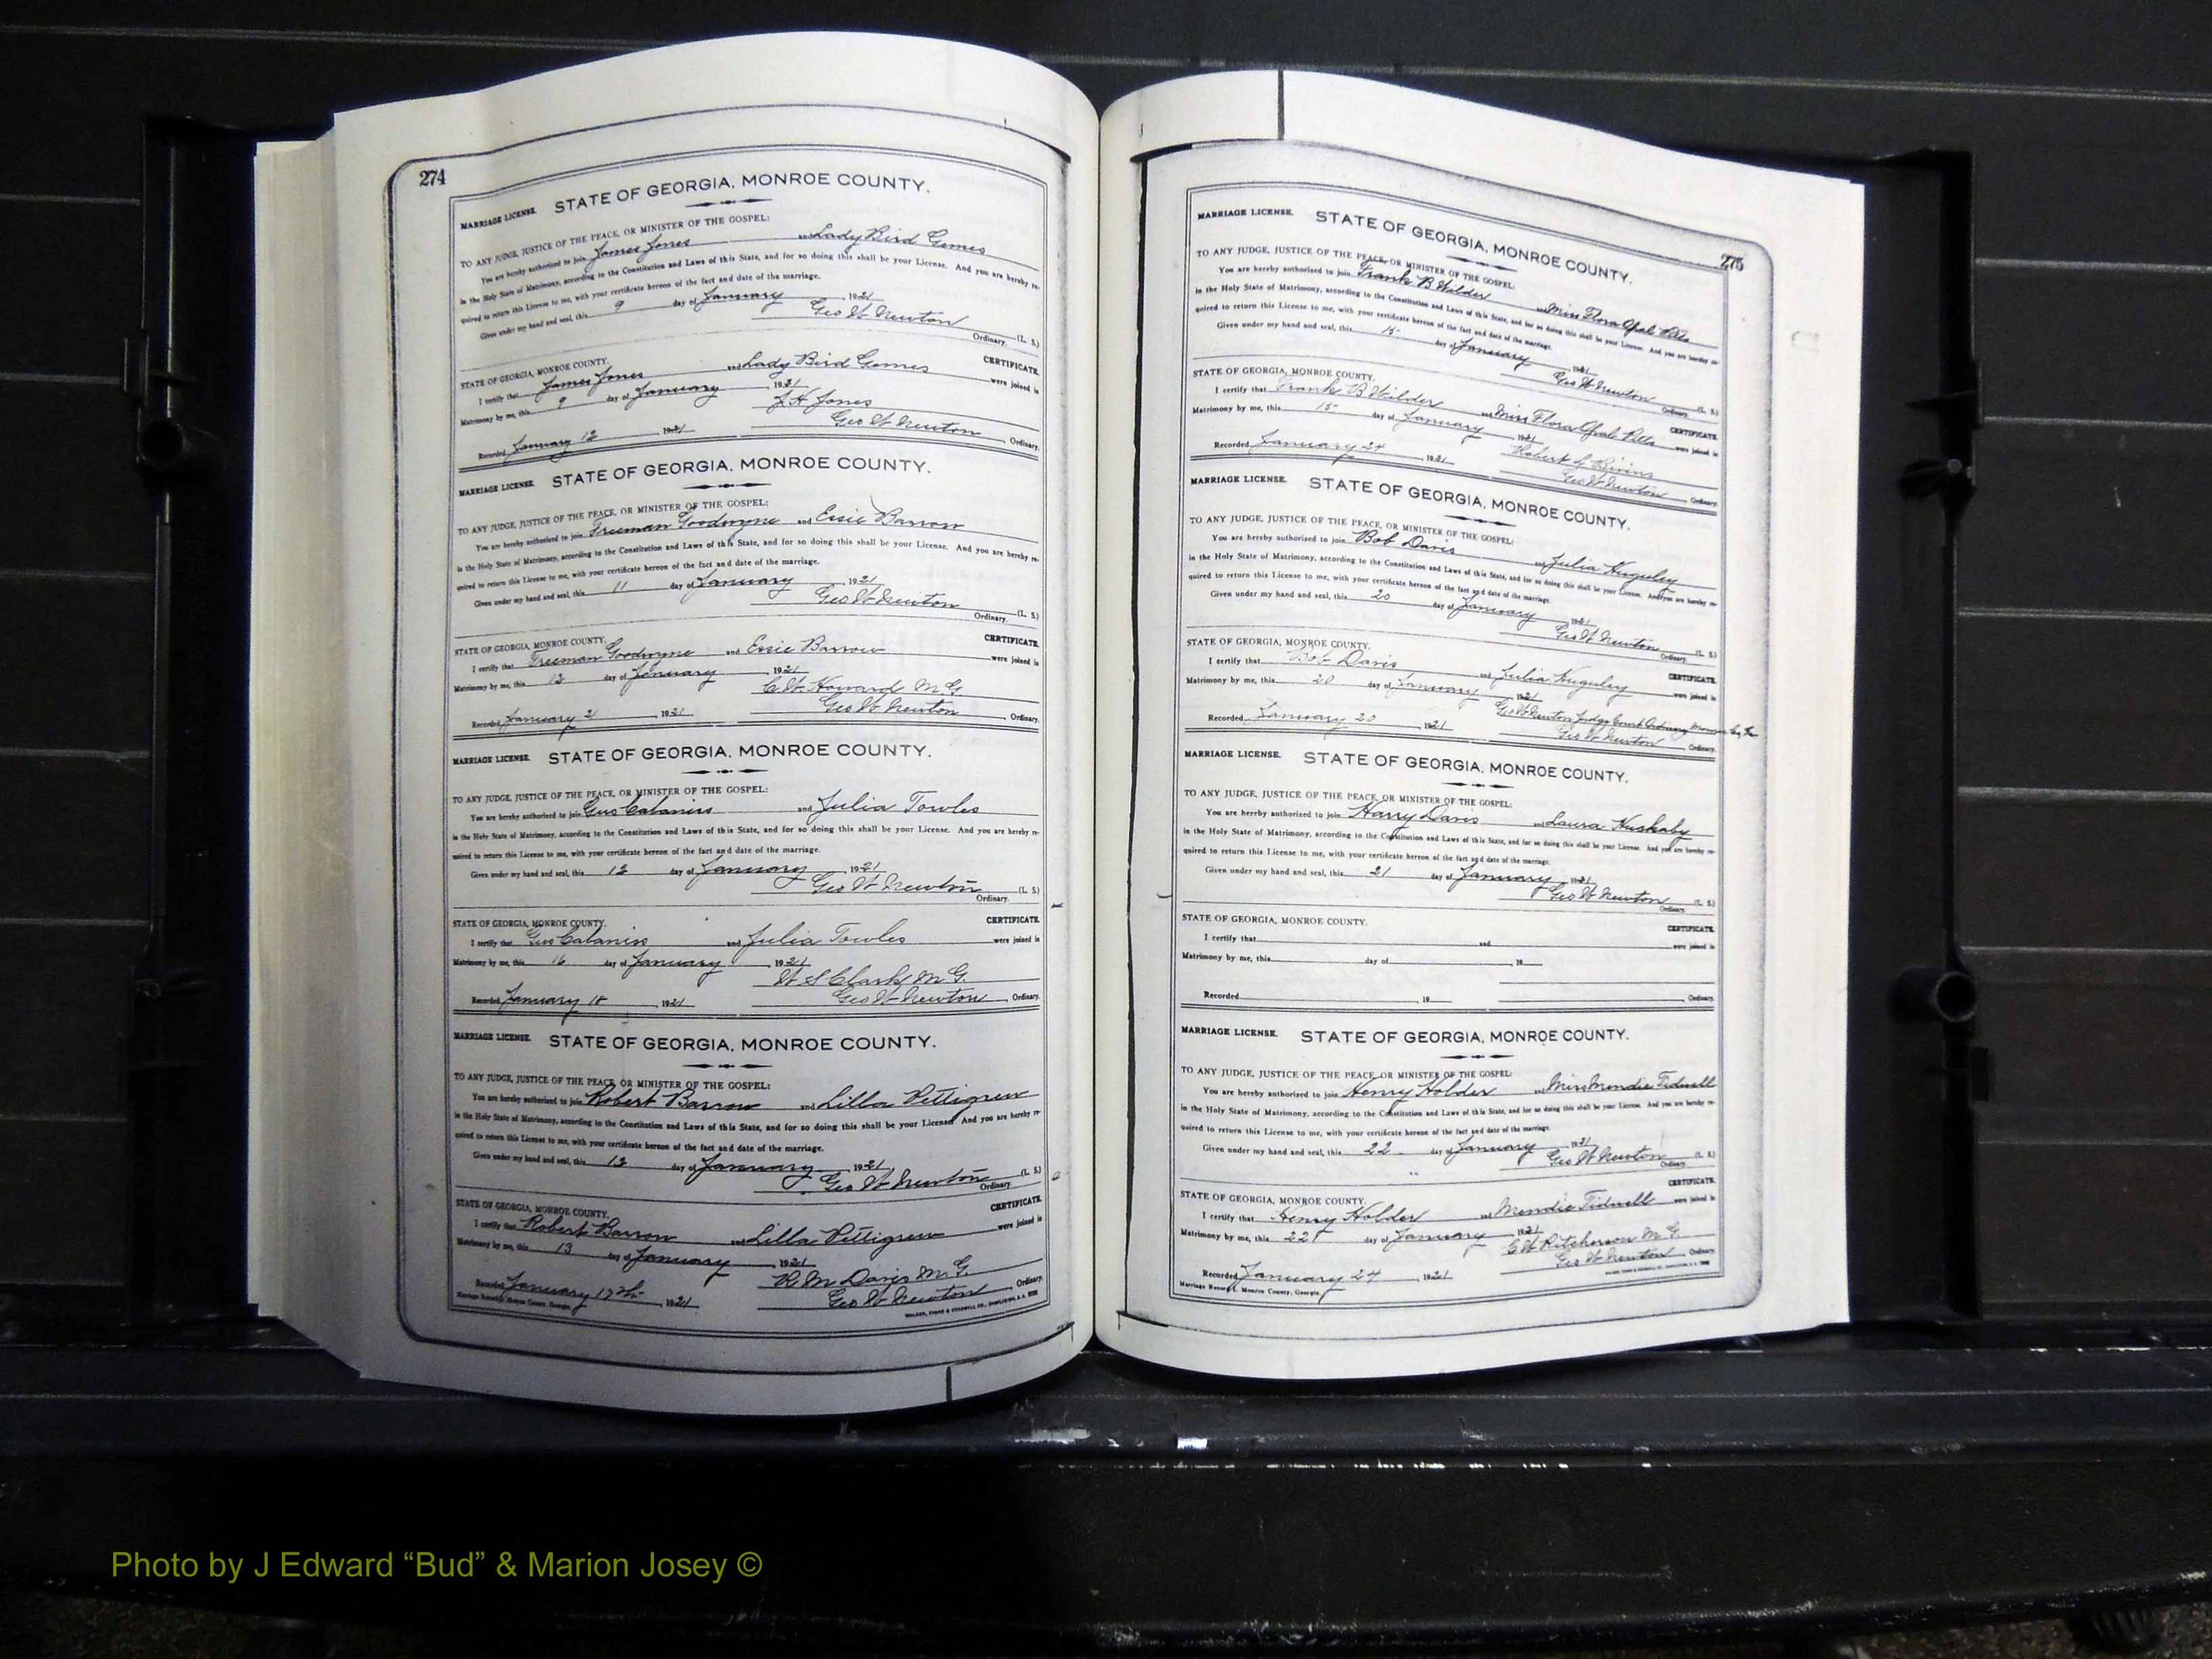 274
MARRIAGE LICENSE. STATE OF GEORGIA, MONROE COUNTY.
TO ANY JUDGE, JUSTICE OF THE PEACE, OR MINISTER OF THE GOSPEL:
You are hereby authorized to join James Jones and Lady Bird Gomes
in the Holy State of Matrimony, according to the Constitution and Laws of this State, and for so doing this shall be your License. And you are hereby re-
quired to return this License to me, with your certificate hereon of the fact and date of the marriage.
Given under my hand and seal, this 9 day of January, 1921
Geo W Newton (L. S.)
Ordinary.
STATE OF GEORGIA, MONROE COUNTY. CERTIFICATE.
I certify that James Jones and Lady Bird Gomes were joined in
Matrimony by me, this 9 day of January, 1921
J H Jones
Recorded January 12, 1921 Geo W Newton, Ordinary.
MARRIAGE LICENSE. STATE OF GEORGIA, MONROE COUNTY.
TO ANY JUDGE, JUSTICE OF THE PEACE, OR MINISTER OF THE GOSPEL:
You are hereby authorized to join Freeman Goodwyne and Essie Barrow
in the Holy State of Matrimony, according to the Constitution and Laws of this State, and for so doing this shall be your License. And you are hereby re-
quired to return this License to me, with your certificate hereon of the fact and date of the marriage.
Given under my hand and seal, this 11 day of January, 1921
Geo W Newton (L. S.)
Ordinary.
STATE OF GEORGIA, MONROE COUNTY. CERTIFICATE.
I certify that Freeman Goodwyne and Essie Barrow were joined in
Matrimony by me, this 12 day of January, 1921
C W Howard M. G.
Recorded January 21, 1921 Geo W Newton, Ordinary.
MARRIAGE LICENSE. STATE OF GEORGIA, MONROE COUNTY.
TO ANY JUDGE, JUSTICE OF THE PEACE, OR MINISTER OF THE GOSPEL:
You are hereby authorized to join Gus Cabaniss and Julia Towles
in the Holy State of Matrimony, according to the Constitution and Laws of this State, and for so doing this shall be your License. And you are hereby re-
quired to return this License to me, with your certificate hereon of the fact and date of the marriage.
Given under my hand and seal, this 12 day of January, 1921
Geo W Newton (L. S.)
Ordinary.
STATE OF GEORGIA, MONROE COUNTY. CERTIFICATE.
I certify that Gus Cabaniss and Julia Towles were joined in
Matrimony by me, this 16 day of January, 1921
W S Clark M. G.
Recorded January 18, 1921 Geo W Newton, Ordinary.
MARRIAGE LICENSE. STATE OF GEORGIA, MONROE COUNTY.
TO ANY JUDGE, JUSTICE OF THE PEACE, OR MINISTER OF THE GOSPEL:
You are hereby authorized to join Robert Barrow and Lilla Pettigrew
in the Holy State of Matrimony, according to the Constitution and Laws of this State, and for so doing this shall be your License. And you are hereby re-
quired to return this License to me, with your certificate hereon of the fact and date of the marriage.
Given under my hand and seal, this 12 day of January, 1921
Geo W Newton (L. S.)
Ordinary
STATE OF GEORGIA, MONROE COUNTY. CERTIFICATE.
I certify that Robert Barrow and Lilla Pettigrew were joined in
Matrimony by me, this 13 day of January, 1921
R M Davis M. G.
Recorded January 17th, 1921 Geo W Newton, Ordinary.
275
MARRIAGE LICENSE. STATE OF GEORGIA, MONROE COUNTY.
TO ANY JUDGE, JUSTICE OF THE PEACE, OR MINISTER OF THE GOSPEL:
You are hereby authorized to join Frank B Wilder and Miss Flora Opal Pitts
in the Holy State of Matrimony, according to the Constitution and Laws of this State, and for so doing this shall be your License. And you are hereby re-
quired to return this License to me, with your certificate hereon of the fact and date of the marriage.
Given under my hand and seal, this 15 day of January, 1921
Geo W Newton (L. S.)
Ordinary.
STATE OF GEORGIA, MONROE COUNTY. CERTIFICATE.
I certify that Frank B Wilder and Miss Flora Opal Pitts were joined in
Matrimony by me, this 15 day of January, 1921
Robert Bivins
Recorded January 24, 1921 Geo W Newton, Ordinary.
MARRIAGE LICENSE. STATE OF GEORGIA, MONROE COUNTY.
TO ANY JUDGE, JUSTICE OF THE PEACE, OR MINISTER OF THE GOSPEL:
You are hereby authorized to join Bob Davis and Julia Huguley
in the Holy State of Matrimony, according to the Constitution and Laws of this State, and for so doing this shall be your License. And you are hereby re-
quired to return this License to me, with your certificate hereon of the fact and date of the marriage.
Given under my hand and seal, this 20 day of January, 1921
Geo W Newton (L. S.)
Ordinary.
STATE OF GEORGIA, MONROE COUNTY. CERTIFICATE.
I certify that Bob Davis and Julia Huguley were joined in
Matrimony by me, this 20 day of January, 1921
Geo W Newton Judge Court Ordinary Monroe Co, Ga
Recorded January 20, 1921 Geo W Newton, Ordinary.
MARRIAGE LICENSE. STATE OF GEORGIA, MONROE COUNTY.
TO ANY JUDGE, JUSTICE OF THE PEACE, OR MINISTER OF THE GOSPEL:
You are hereby authorized to join Harry Davis and Laura Huskaby
in the Holy State of Matrimony, according to the Constitution and Laws of this State, and for so doing this shall be your License. And you are hereby re-
quired to return this License to me, with your certificate hereon of the fact and date of the marriage.
Given under my hand and seal, this 21 day of January, 1921
Geo W Newton (L. S.)
Ordinary.
STATE OF GEORGIA, MONROE COUNTY. CERTIFICATE.
I certify that and were joined in
Matrimony by me, this day of, 19
Recorded, 19, Ordinary.
MARRIAGE LICENSE. STATE OF GEORGIA, MONROE COUNTY.
TO ANY JUDGE, JUSTICE OF THE PEACE, OR MINISTER OF THE GOSPEL:
You are hereby authorized to join Henry Holder and Miss Mendie Tidwell
in the Holy State of Matrimony, according to the Constitution and Laws of this State, and for so doing this shall be your License. And you are hereby re-
quired to return this License to me, with your certificate hereon of the fact and date of the marriage.
Given under my hand and seal, this 22 day of January, 1921
Geo W Newton (L. S.)
Ordinary.
STATE OF GEORGIA, MONROE COUNTY. CERTIFICATE.
I certify that Henry Holder and Mendie Tidwell were joined in
Matrimony by me, this 22 day of January, 1921
C W Ritcherson M. G.
Recorded January 24, 1921 Geo W Newton, Ordinary
Marriage Record L Monroe County, Georgia.
Photo by J Edward “Bud” & Marion Josey ©